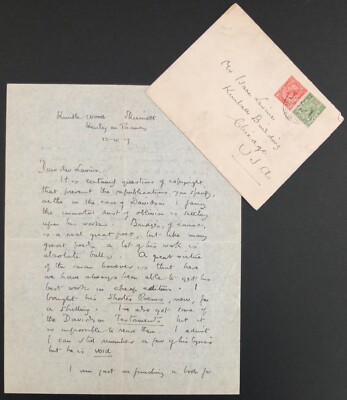 Mr Lew Levine
Kimball Building
Chicago
U.S.A.
Kindle Wood Shiplake
Henley on Thames
Dear Mr Levine,
It is continual questions of copyright
that prevent the republications you specify,
as in the case of Davidson I fancy
the immortal dust of oblivion is settling
upon his works. Bridges, of course,
is a real great poet, but like many
great poets a lot of his work is
absolute balls. A great virtue
of the man however is that here
we have always been able to get his
best work in cheap edition. I
bought his Shorter Poems, new, for
a shilling. I've also got some of
the Davidson Testaments but it
is impossible to read them. I admit
I can still remember a few of his lyrics
but he is void
I am just as finishing a book for